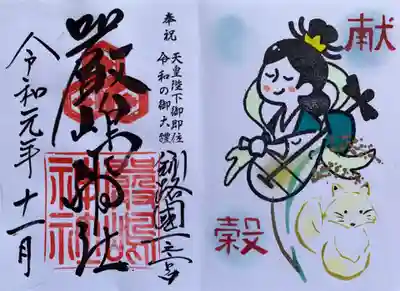 奉祝
天皇陛下御即位
令和の御大禮
釧路國一之宮
嚴嶋神社
嚴嶋神社
令和元年十一月
献穀